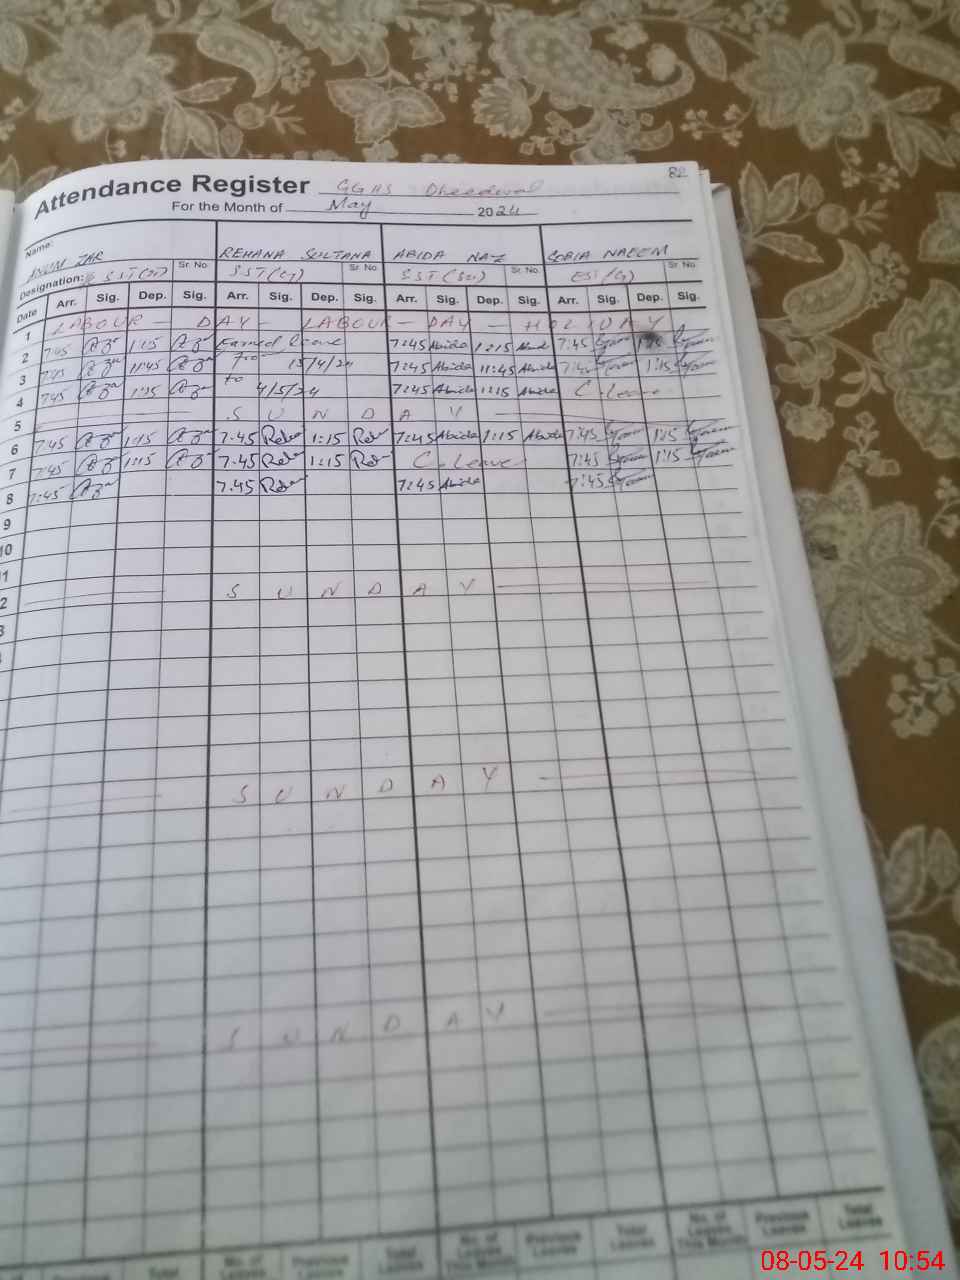 82
Attendance Register GGHS Dheedwal
For the Month of May 2024
Name: ANUM ZAR REHANA SULTANA ABIDA NAZ SOBIA NAEEM
Designation: SST (CT) Sr. No. SST (Sci) Sr. No. EST (G) Sr. No.
Sr. No.
Date Arr. Sig. Dep. Sig. Arr. Sig. Dep. Sig. Arr. Sig. Dep. Sig. Arr. Sig. Dep. Sig.
1 LABOUR - DAY - LABOUR - DAY - HOLIDAY
2 7:45 1:15 Earned leave 7:45 Abida 1:15 Abida 7:45 1:15
3 7:45 11:45 From 15/4/24 7:45 Abida 11:45 Abida 7:45 1:15
4 7:45 to 4/5/24 7:45 Abida 1:15 Abida C-Leave
5 S U N D A Y
6 7:45 1:15 7.45 1:15 7:45 Abida 1:15 Abida 7:45 1:15
7 7:45 1:15 7.45 1:15 C-Leave 7:45 1:15
8 7:45 7.45 7:45 Abida 7:45
9
10
1
2 S U N D A Y
3
S U N D A Y
S U N D A Y
No. of Previous Leaves Total Leaves No. of Leaves This Month Previous Leaves Total Leaves No. of Leaves This Month Previous Leaves Total Leaves
08-05-24 10:54